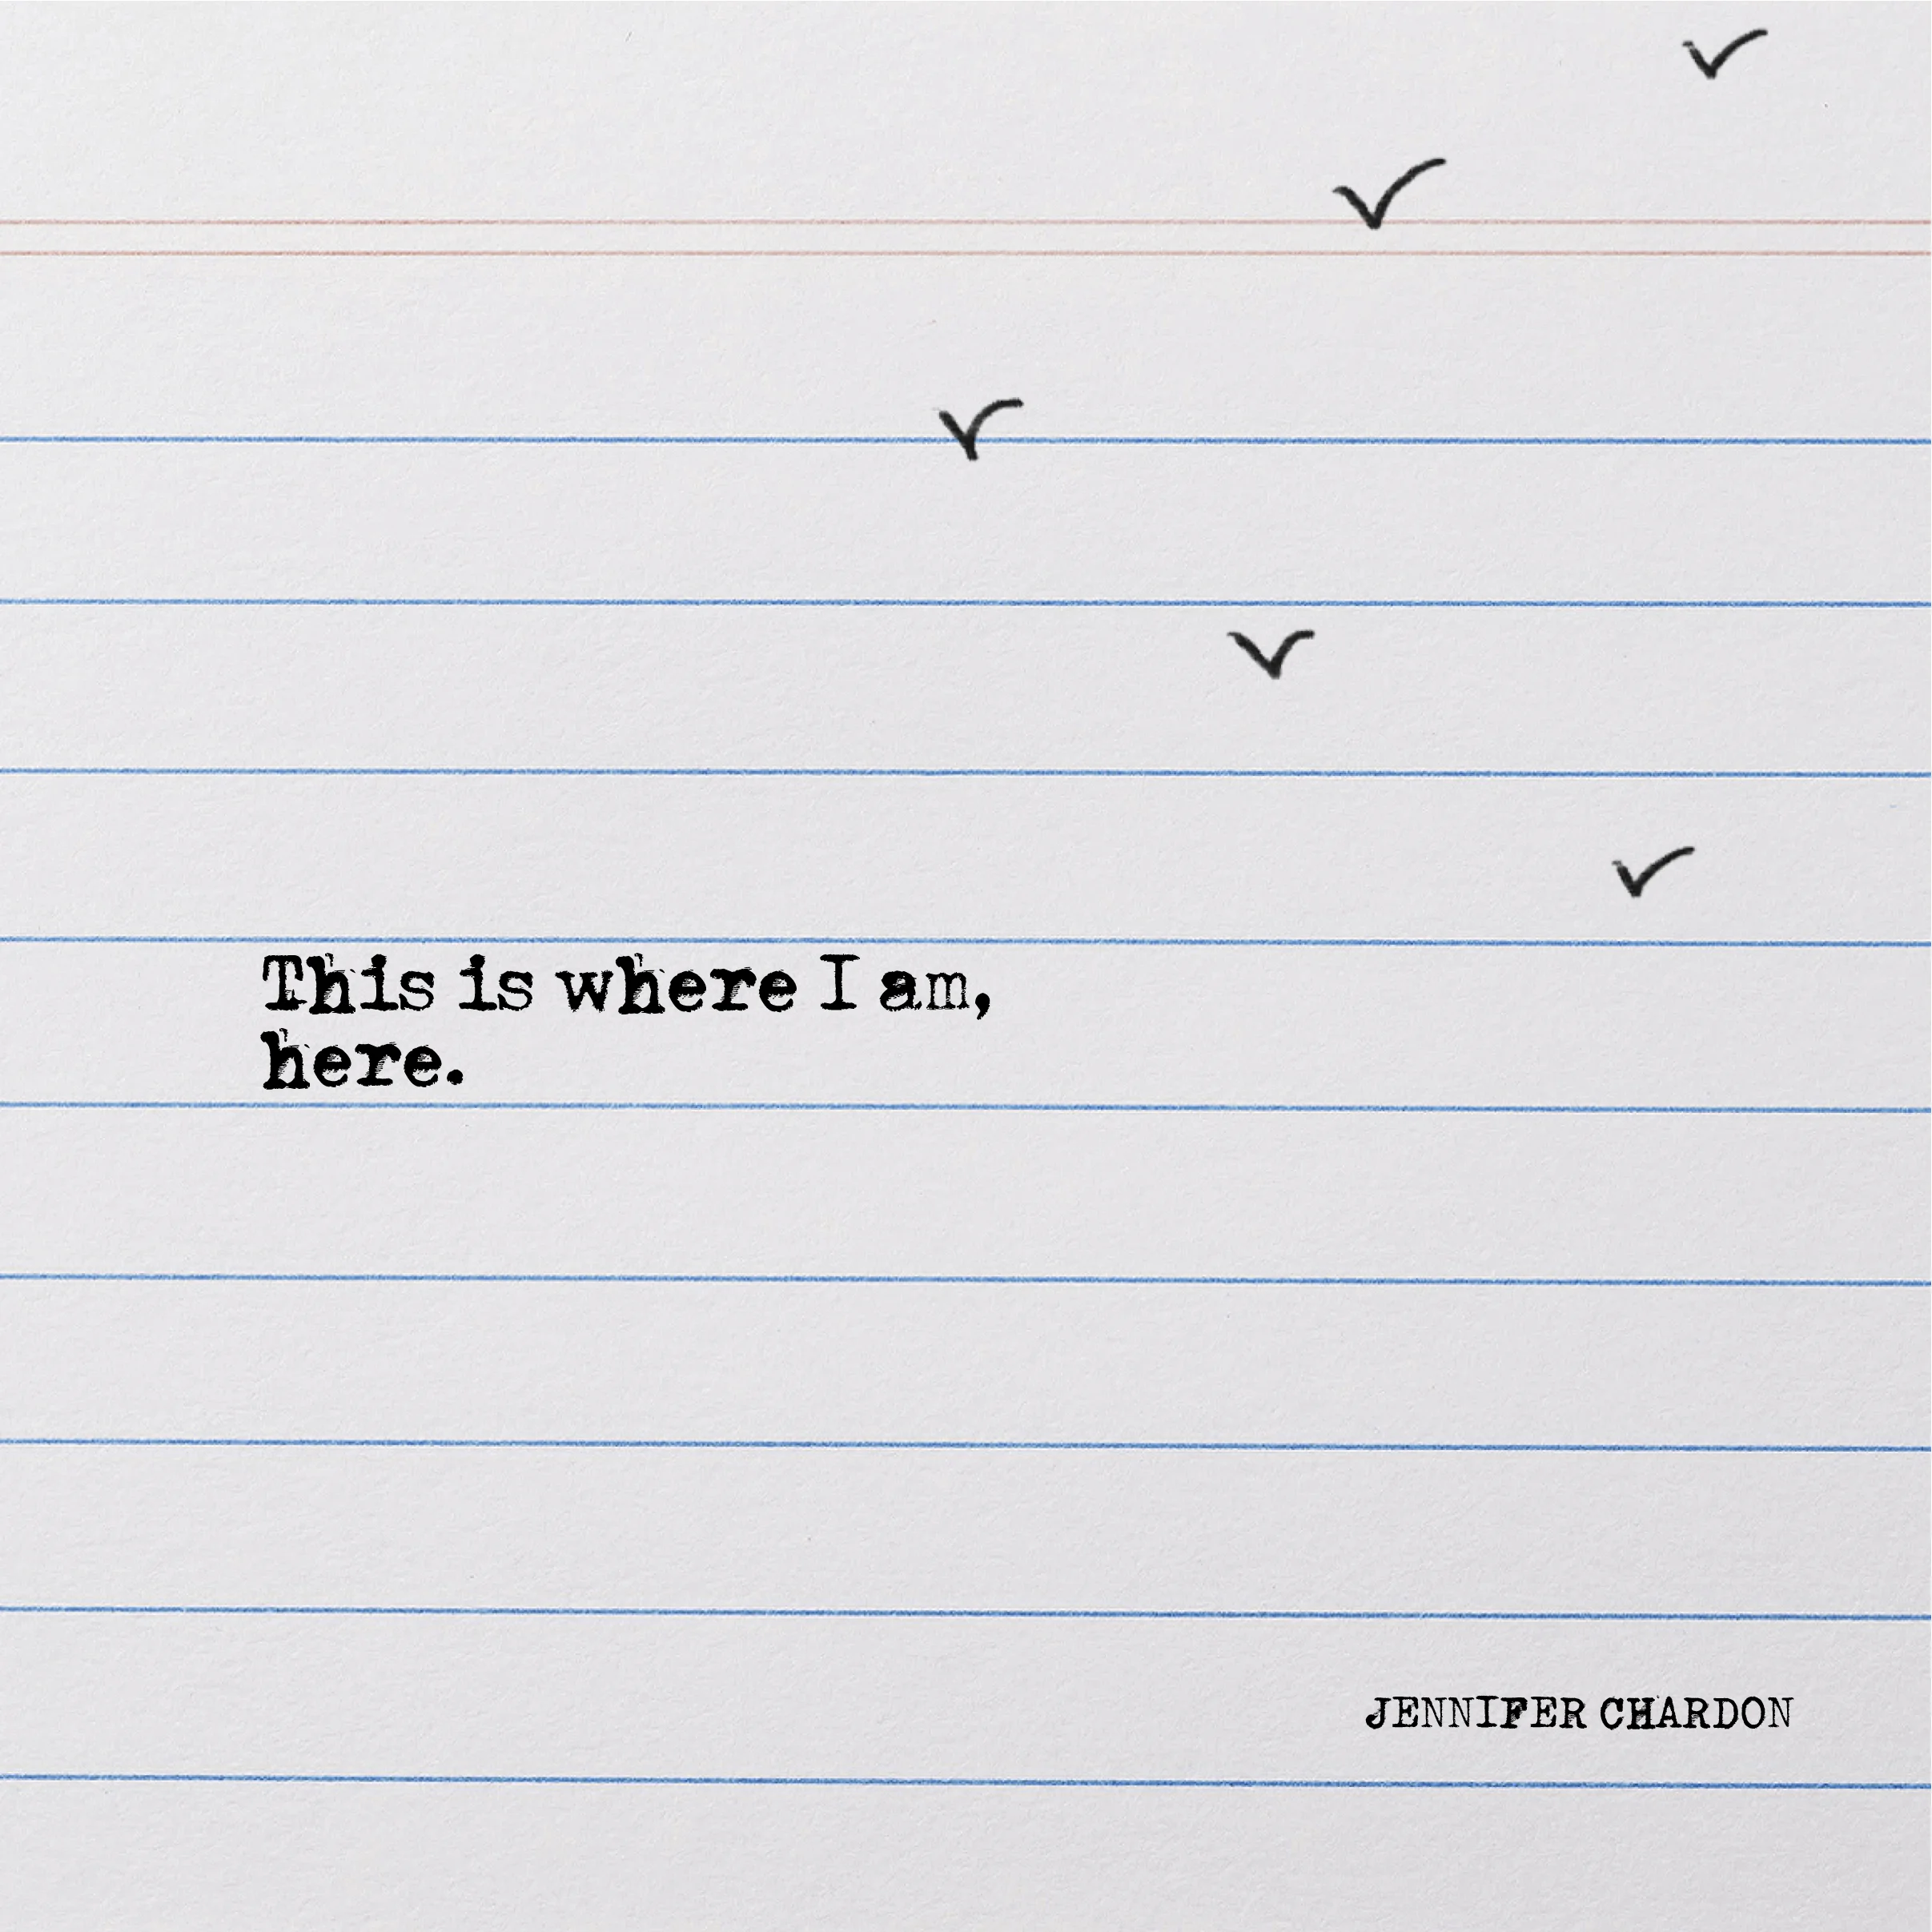 This is where I am,
here.
JENNIFER CHARDON